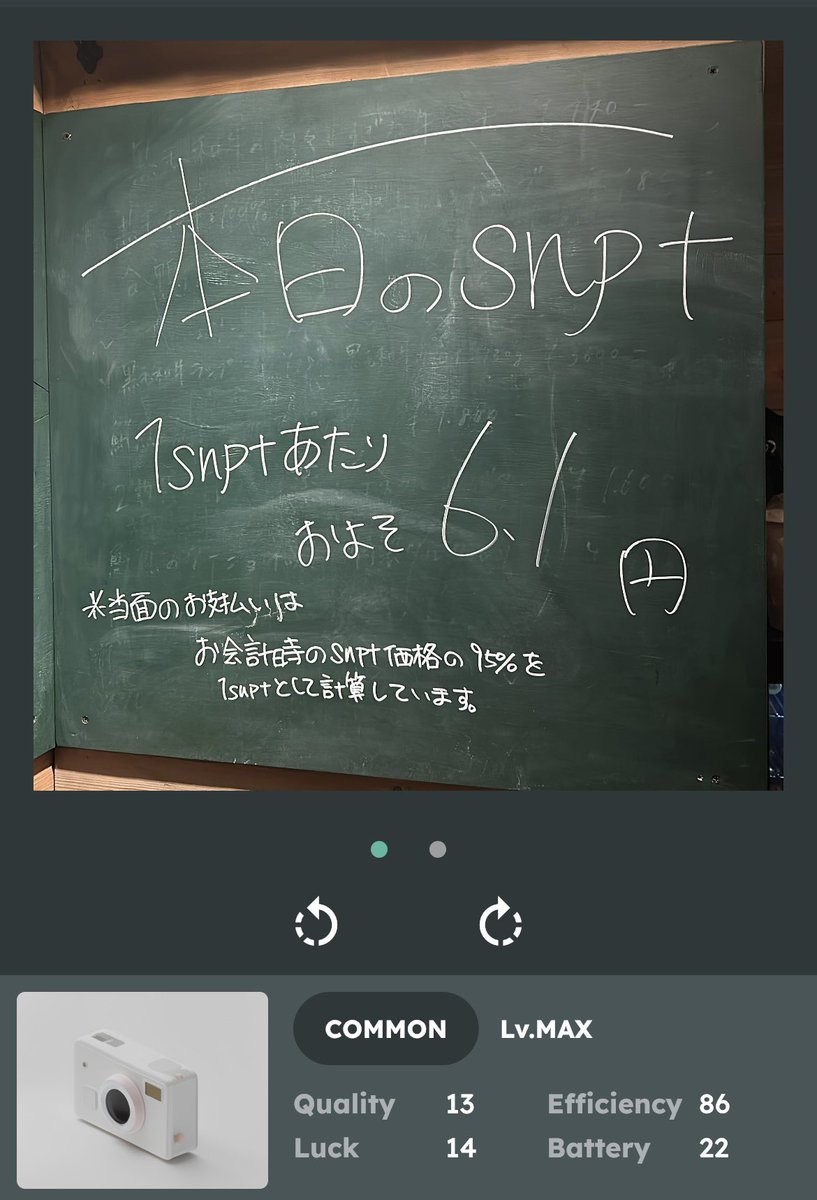 本日のsnpt
1snptあたり
およそ 6.1
円
※当面のお支払いは
お会計時のsnpt価格の95%を
1snptとして計算しています。
COMMON Lv.MAX
Quality 13 Efficiency 86
Luck 14 Battery 22